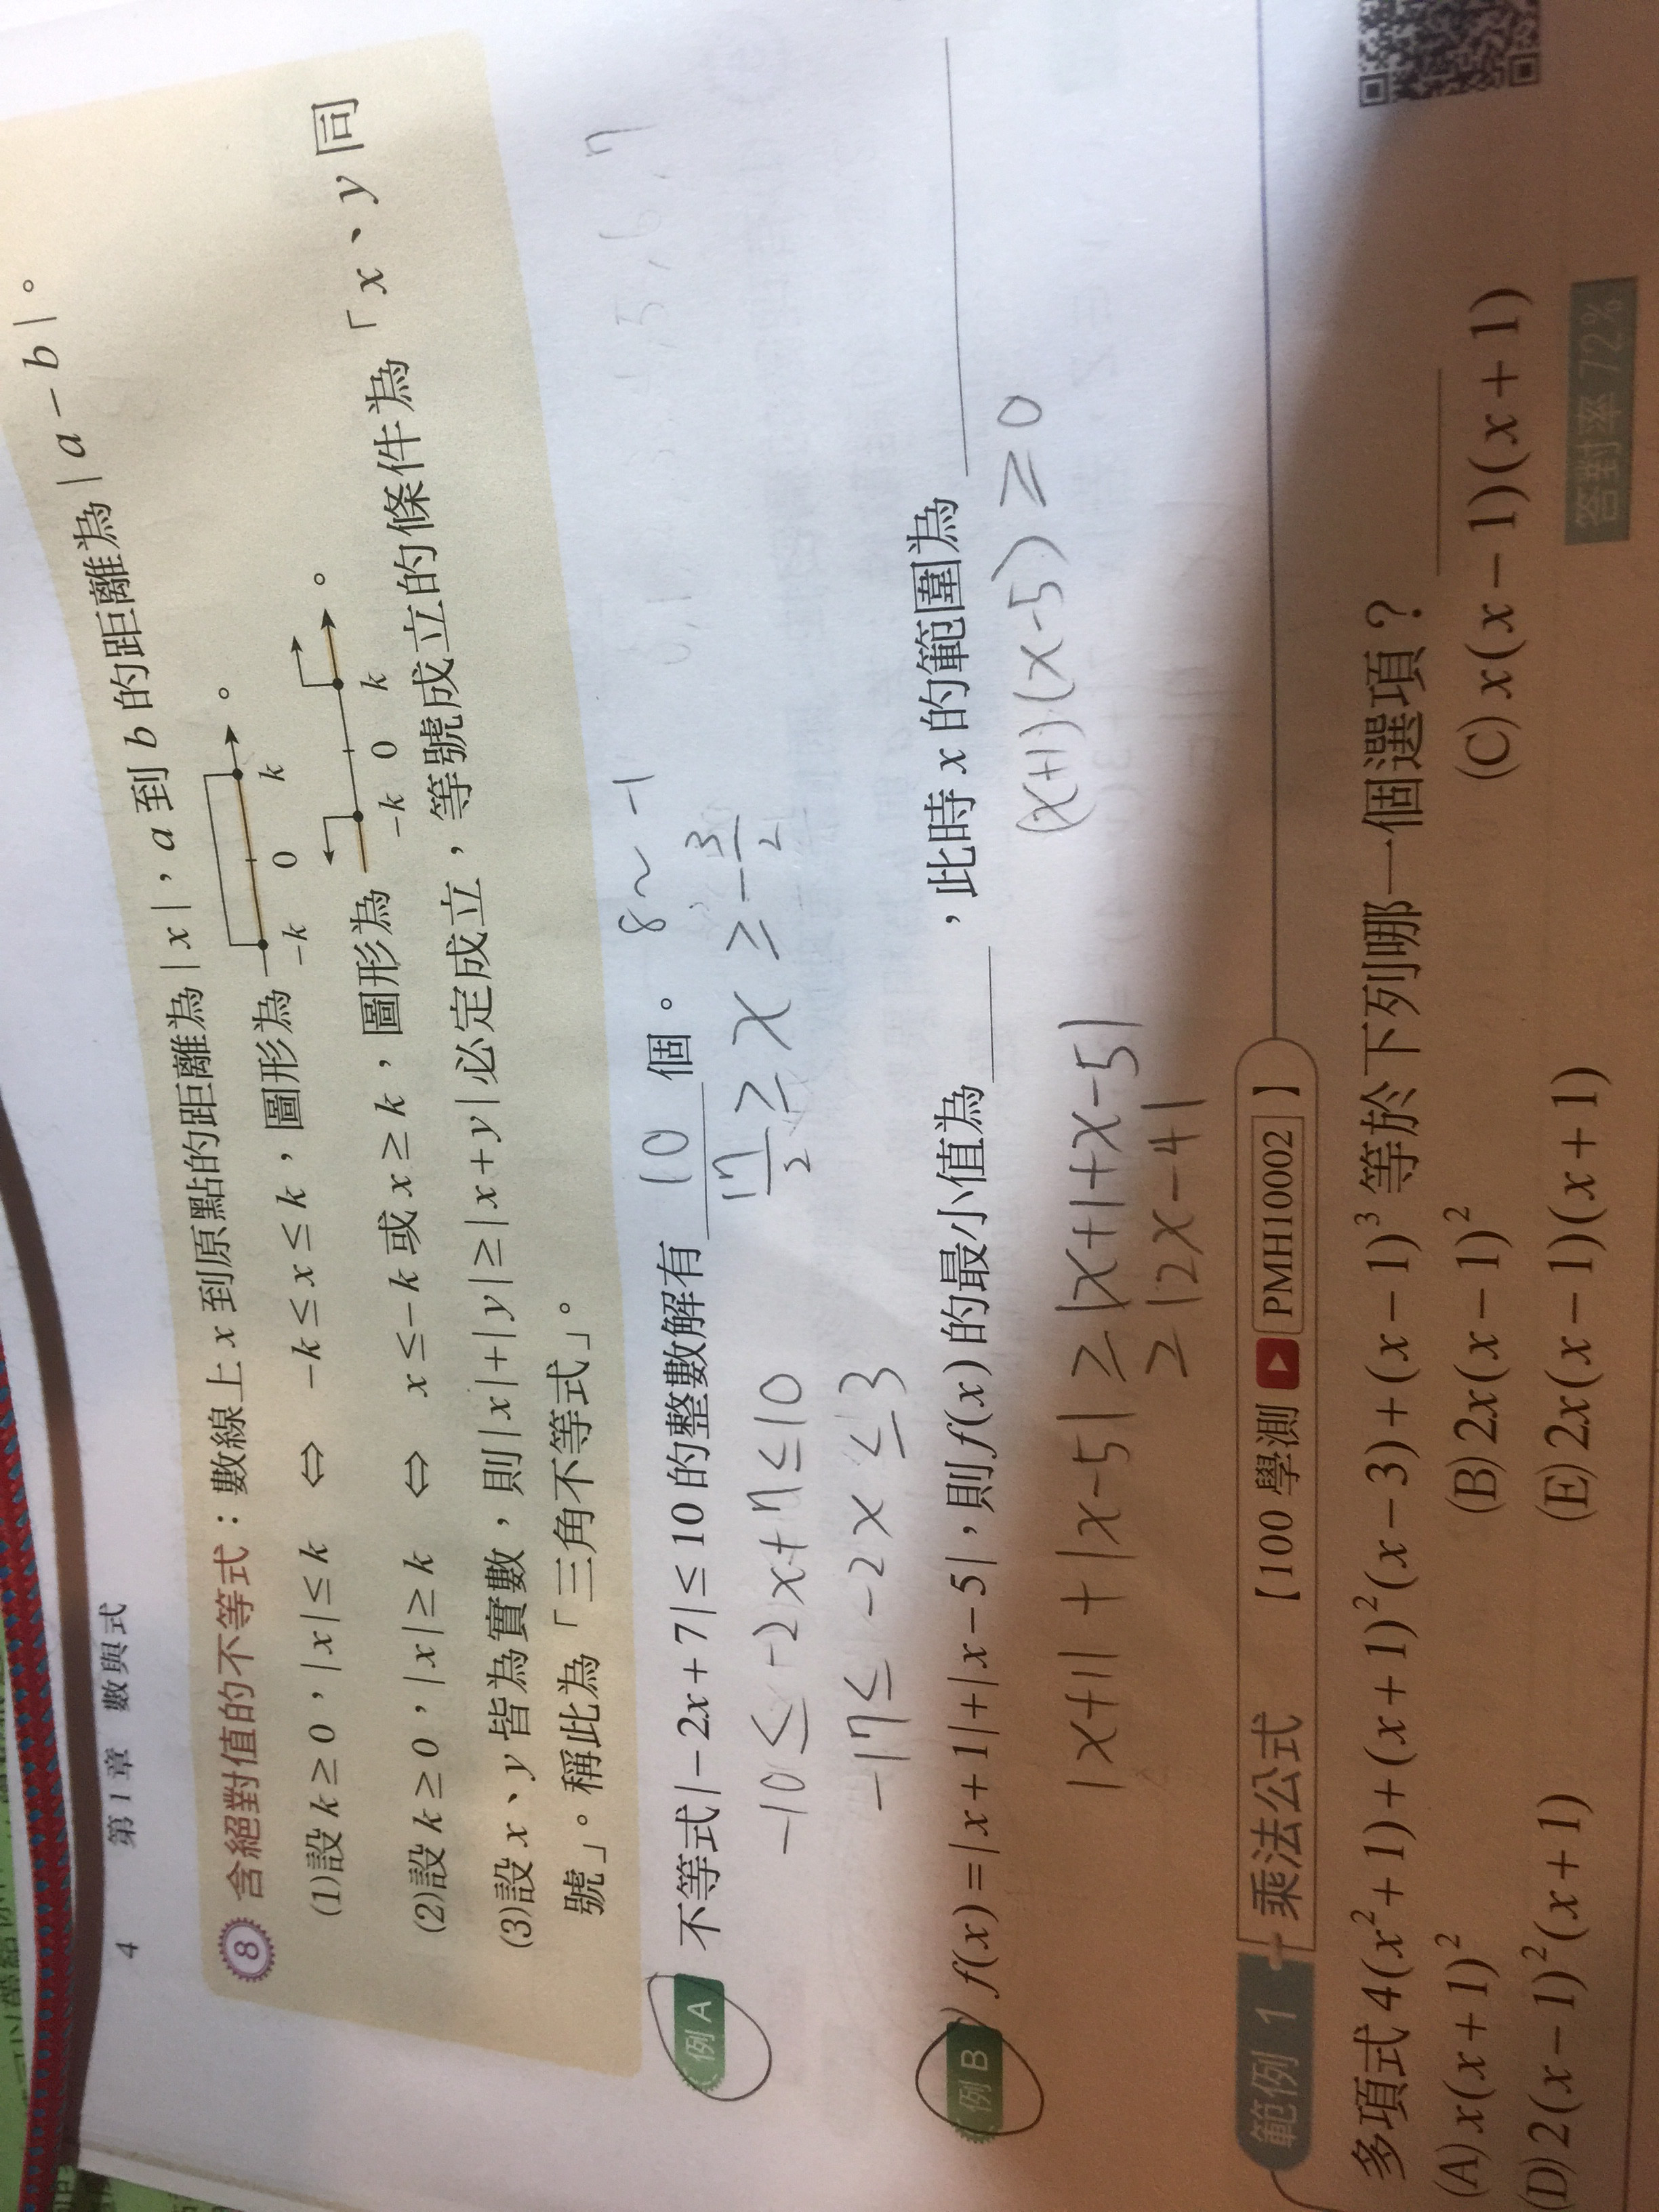 4 第1章 數與式
8 含絕對值的不等式：數線上 x 到原點的距離為|x|，a 到 b 的距離為|a－b|。
(1)設 k≥0，|x|≤k ⇔ －k≤x≤k，圖形為 －k 0 k 。
(2)設 k≥0，|x|≥k ⇔ x≤－k 或 x≥k，圖形為 －k 0 k 。
(3)設 x、y 皆為實數，則|x|+|y|≥|x+y|必定成立，等號成立的條件為「x、y 同
號」。稱此為「三角不等式」。
例 A 不等式|－2x+7|≤10 的整數解有 10 個。 8~-1
-10≤-2x+7≤10 17/2≥x≥-3/2
-17≤-2x≤3
例 B f(x)=|x+1|+|x－5|，則 f(x) 的最小值為____，此時 x 的範圍為____
|x+1|+|x-5|≥|x+1+x-5| (x+1)(x-5)≥0
≥|2x-4|
範例 1 乘法公式 【100 學測 PMH10002】
多項式 4(x²+1)+(x+1)²(x－3)+(x－1)³ 等於下列哪一個選項？
(A) x(x+1)² (B) 2x(x－1)² (C) x(x－1)(x+1)
(D) 2(x－1)²(x+1) (E) 2x(x－1)(x+1)
答對率 72%